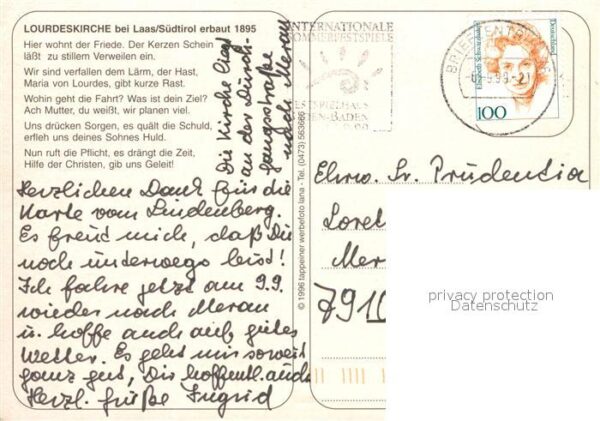 LOURDESKIRCHE bei Laas/Südtirol erbaut 1895
Hier wohnt der Friede. Der Kerzen Schein
läßt zu stillem Verweilen ein.
Wir sind verfallen dem Lärm, der Hast,
Maria von Lourdes, gibt kurze Rast.
Wohin geht die Fahrt? Was ist dein Ziel?
Ach Mutter, du weißt, wir planen viel.
Uns drücken Sorgen, es quält die Schuld,
erfleh uns deines Sohnes Huld.
Nun ruft die Pflicht, es drängt die Zeit,
Hilfe der Christen, gib uns Geleit!
Die Kirche liegt
an der Durch-
gangsstraße
nach Meran
Herzlichen Dank für die
Karte vom Lindenberg.
Es freut mich, daß Du
noch unterwegs bist!
Ich fahre jetzt am 9.9.
wieder nach Meran
u. hoffe auch auf gutes
Wetter. Es geht mir soweit
ganz gut, Dir hoffentl. auch
Herzl. Grüße Ingrid
© 1996 tappeiner werbefoto lana - Tel. (0473) 563666
INTERNATIONALE
SOMMERFESTSPIELE
FESTSPIELHAUS
BADEN-BADEN
BRIEFZENTRUM
Elisabeth Schwarzhaupt
Deutschland
100
Ehrw. Sr. Prudentia
Loret
Mer
7910
privacy protection
Datenschutz